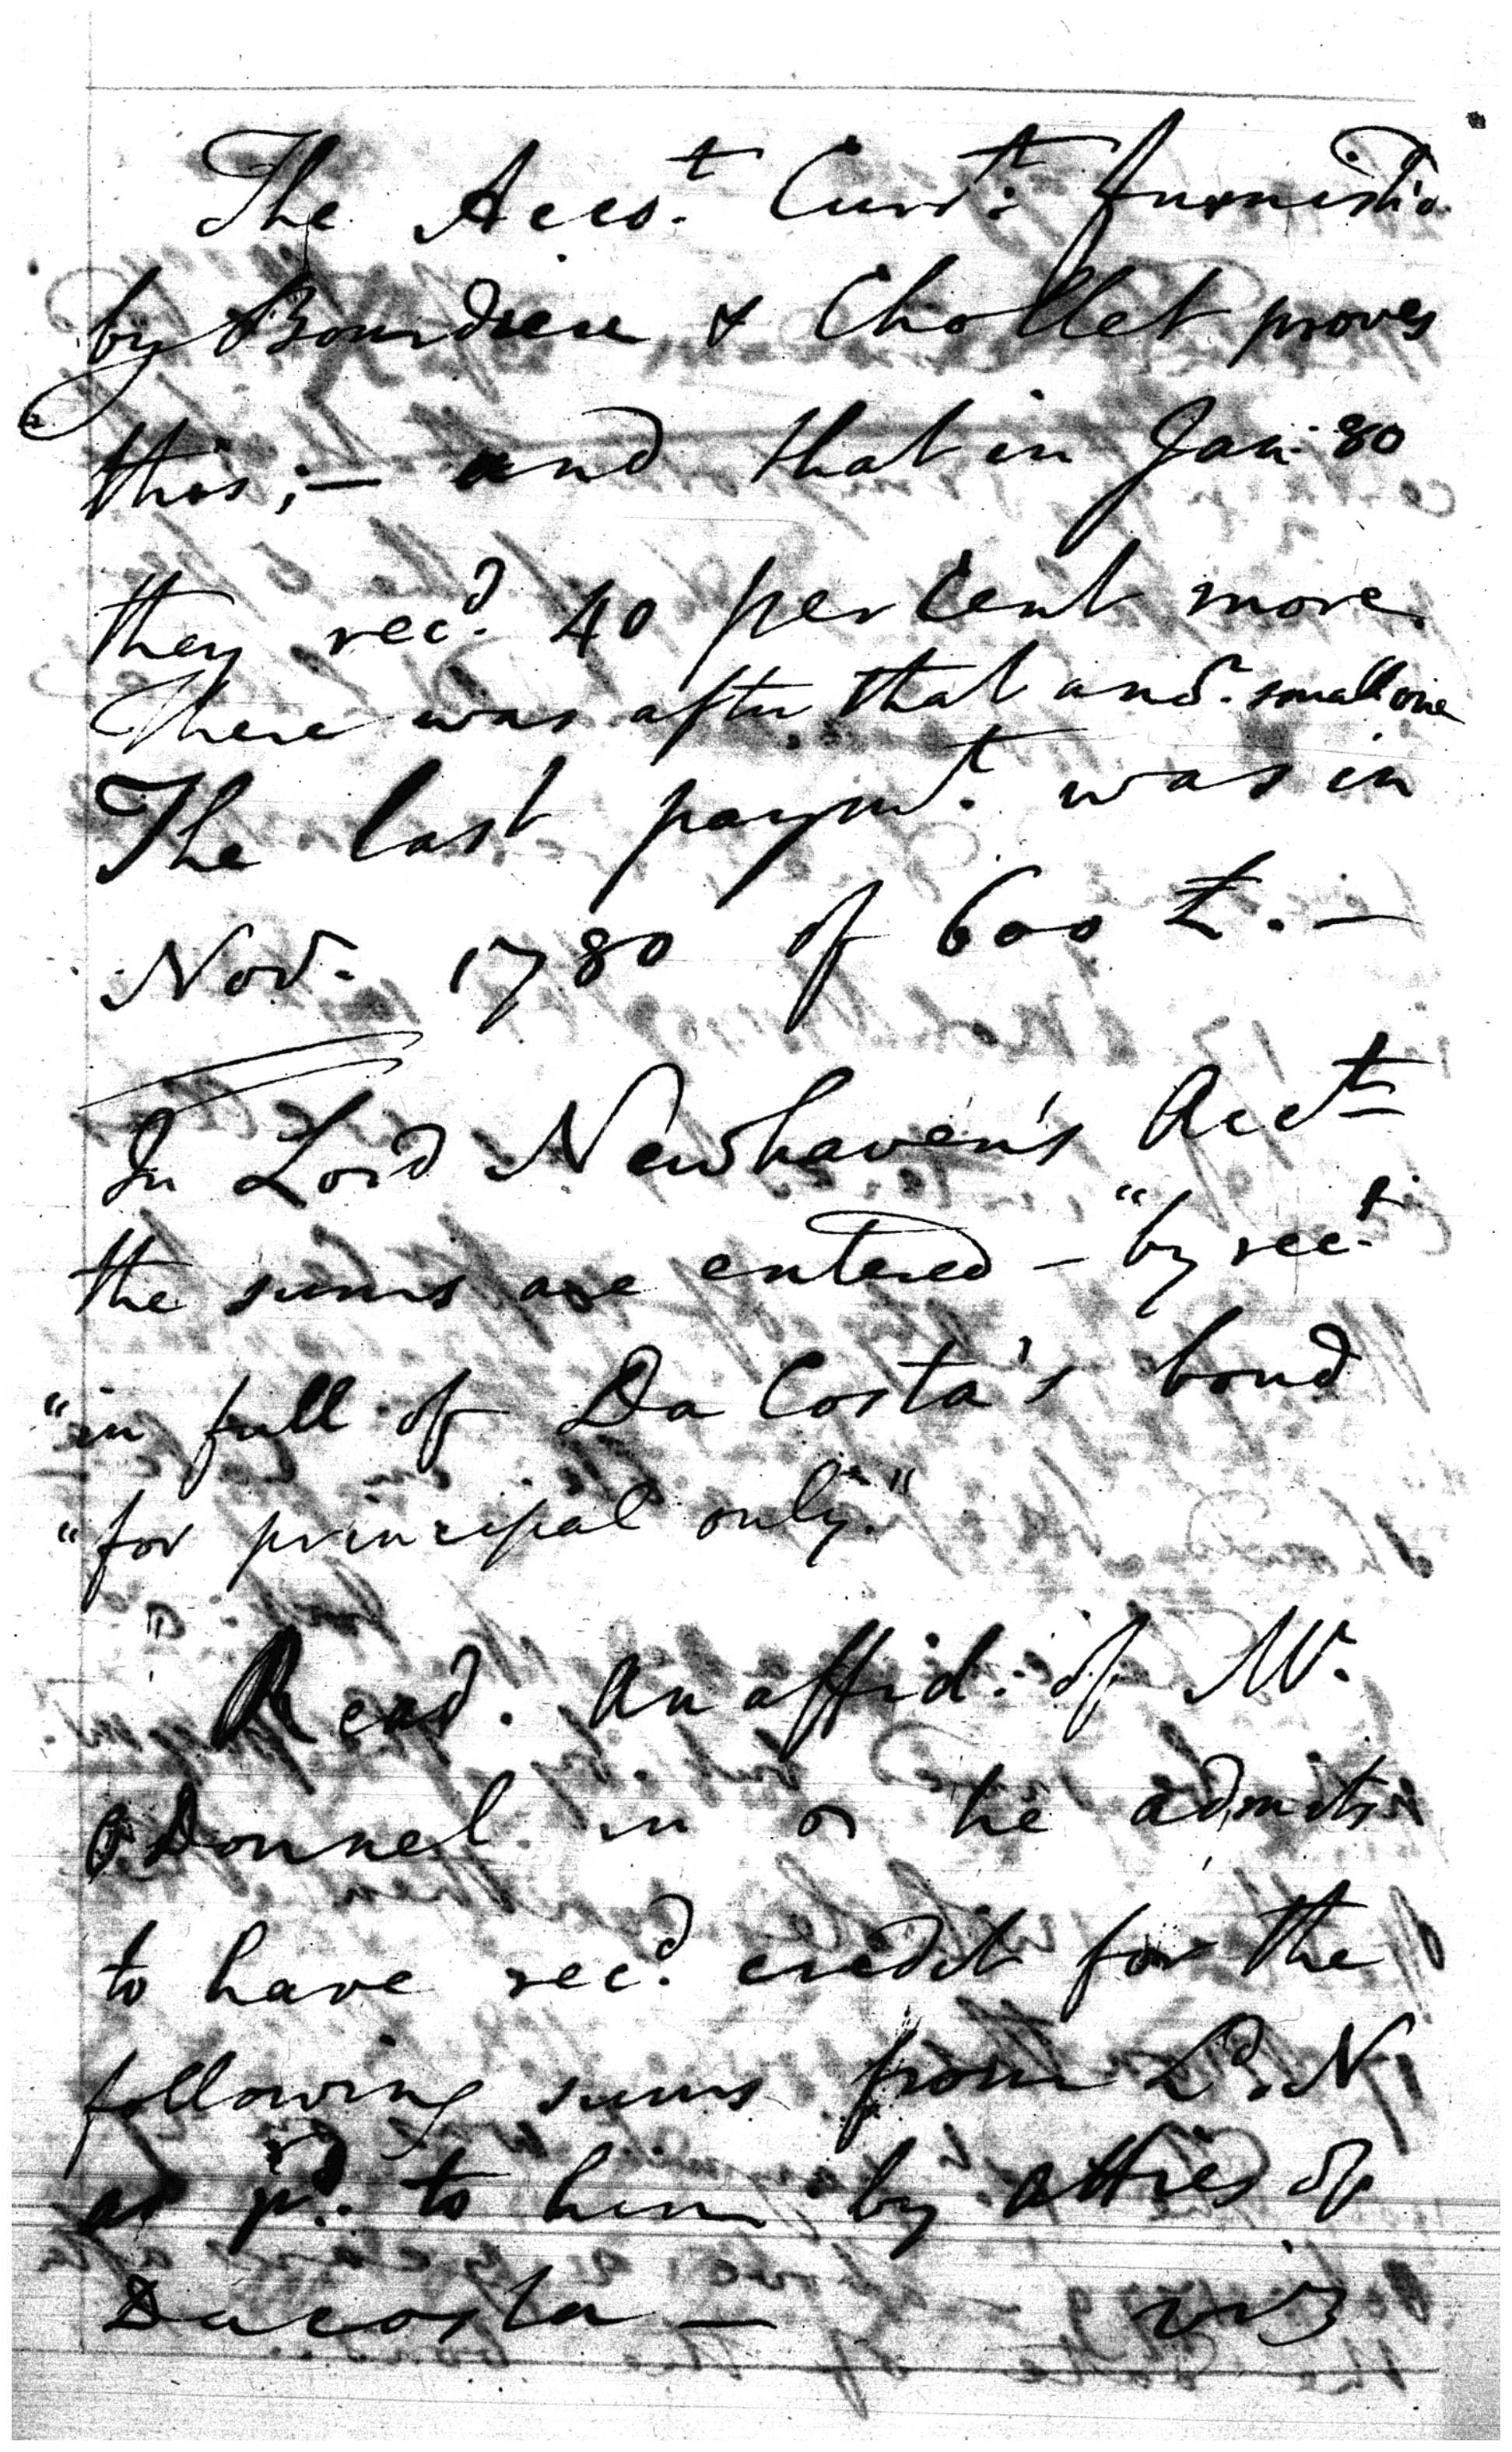 The Acco.t Curr.t furnish'd
by Bourdieu & Chollet proves
this;— and that in Jan: 80
they rec.d 40 per Cent more.
There was after that ano.r small one
The last paym.t was in
Nov.r 1780 of 600 £.—
In Lord Newhaven's Acc.t
the sums are entered — "by rec.t
"in full of Da Costa's bond
"for principal only."
Read. an affid: of Mr.
O Donnel in he admits
to have rec.d credit for the
following sums from L.d N
as p.d to him by Atties of
Dacosta — viz